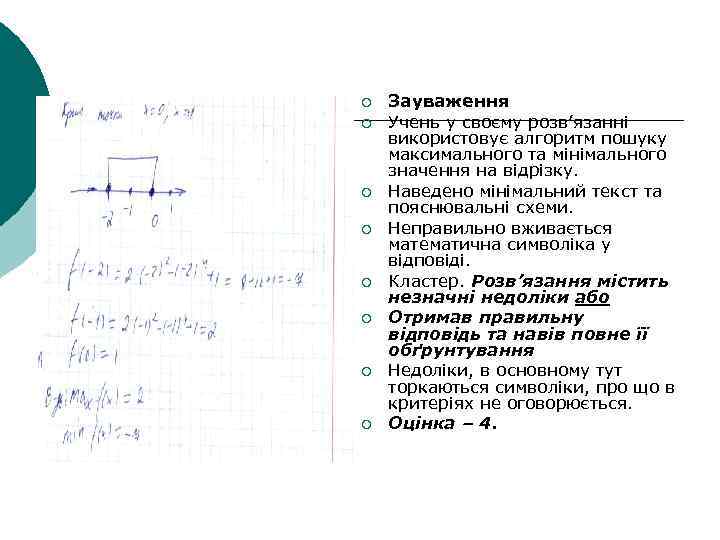 Крит точки x=0, x=±1
-2 -1 0 1
f(-2)=2(-2)²-(-2)⁴+1= 8-16+1=-7
f(-1)=2(-1)²-(-1)⁴+1=2
f(0)=1
max f(x)=2
min f(x)=-7
Зауваження
Учень у своєму розв’язанні
використовує алгоритм пошуку
максимального та мінімального
значення на відрізку.
Наведено мінімальний текст та
пояснювальні схеми.
Неправильно вживається
математична символіка у
відповіді.
Кластер. Розв’язання містить
незначні недоліки або
Отримав правильну
відповідь та навів повне її
обґрунтування
Недоліки, в основному тут
торкаються символіки, про що в
критеріях не оговорюється.
Оцінка – 4.